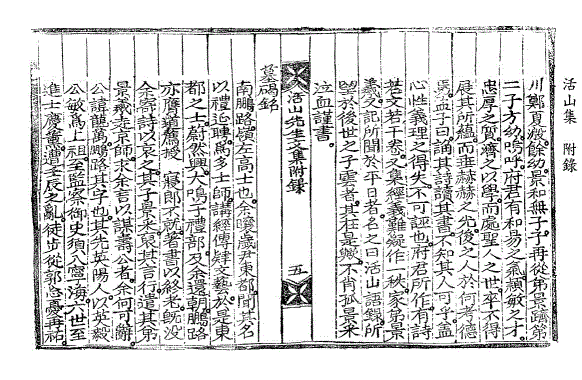 活山集　附錄
川鄭夏殷餘幼景和無子子再從弟景躋第
二子方幼嗚呼府君有和易之氣穎敏之才
忠厚之質濟之以學而處聖人之世卒不得
展其所蘊而垂赫赫之先後之人於何考德
焉孟子曰誦其詩讀其書不知其人可乎盖
心性義理之得失不可誣也府君所作有詩
若文若干卷又集經義難疑作一秩家弟景
羲又記所聞於平日者名之曰活山語錄所
望於後世之子雲者其在是歟不肖孤景采
泣血謹書
活山先生文集附錄
五
墓碣銘
南鵬路嶺左高士也余曩歲尹東都聞其名
以禮延聘爲多士師講經傳肄文藝於是東
都之士蔚然興大鳴子禮部及余還朝鵬路
亦膺薦爲授　寢郎不就著書以終老旣沒
余寄詩以哀之其子景采裒其言行遣其弟
景羲至京師求余言以謀壽公者余何可辭
公諱龍萬鵬路其字也其先英陽人以英毅
公敏爲上祖至監察御史須入寧海八世至
進士慶薰遭壬辰之亂徒步從郭忘憂再祐